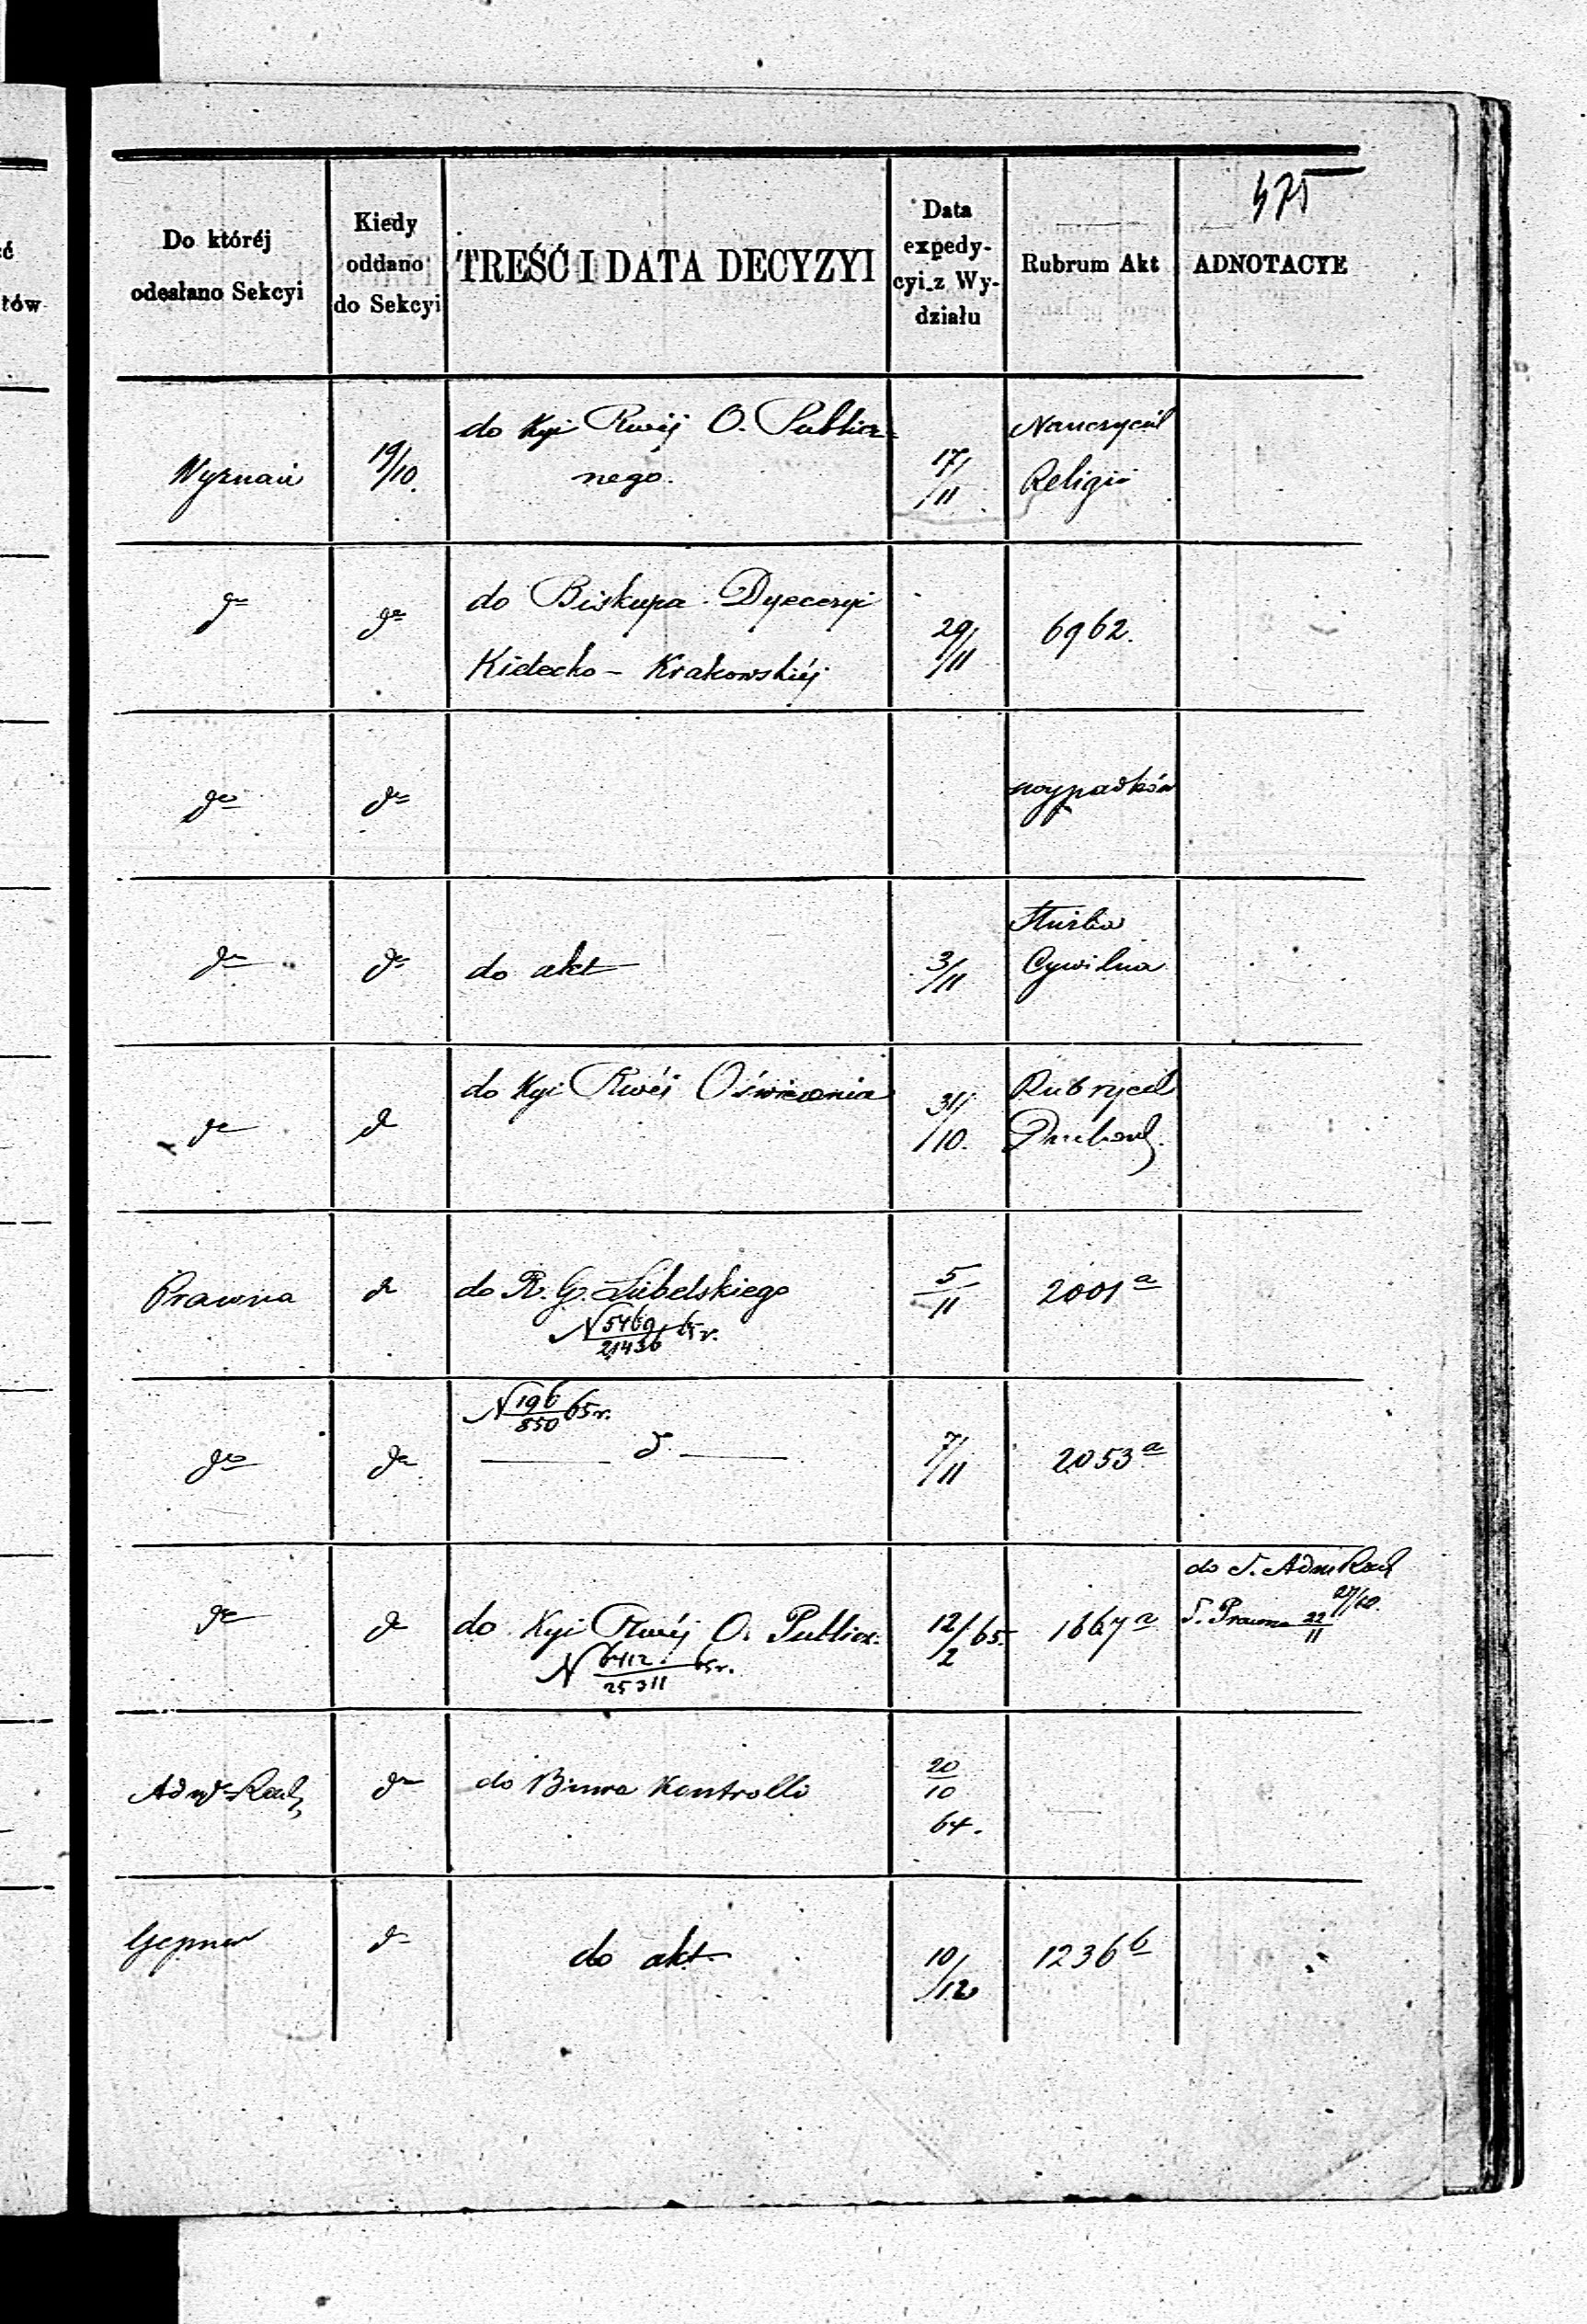 475
ć
tów
Do któréj
odesłano Sekcyi
Kiedy
oddano
do Sekcyi
TREŚĆ I DATA DECYZYI
Data
expedy-
cyi z Wy-
działu
Rubrum Akt
ADNOTACYE
Wyznań
19/10.
do Kyi Rwéj O. Publicz=
nego.
17/11
Nauczyciel
Religii
do
do
do Biskupa Dyecezyi
Kielecko - Krakowskiéj
29/11
6962.
do
do
wypadków
do
do
do akt
3/11
Służba
Cywilna
do
do
do Kyi Rwéj Oświecenia
31/10.
Rubrycel
Prawna
do
do R. G. Lubelskiego
N 5469/21436 65r.
5/11
2001 a
do
do
N 196/850 65r.
do
7/11
2053 a
do
do
do Kyi Rwéj O. Publicz.
N 6412./25311 65r.
12/2 65.
1667 a
do S. Adm Rach
27/10.
S. Prawna 22/11
do
do Biura Kontrolli
20/10
64.
Gepner
do
do akt
10/12
1236 b